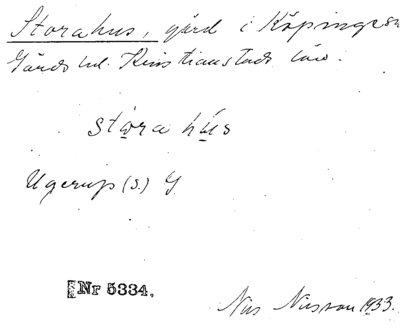 Storahus, gård i Köpinge sn
Gärds hd. Kristianstads län.
stọra hụ́s
Ugerup (s.) G.
Nr 5334.
Nils Nilsson 1933.